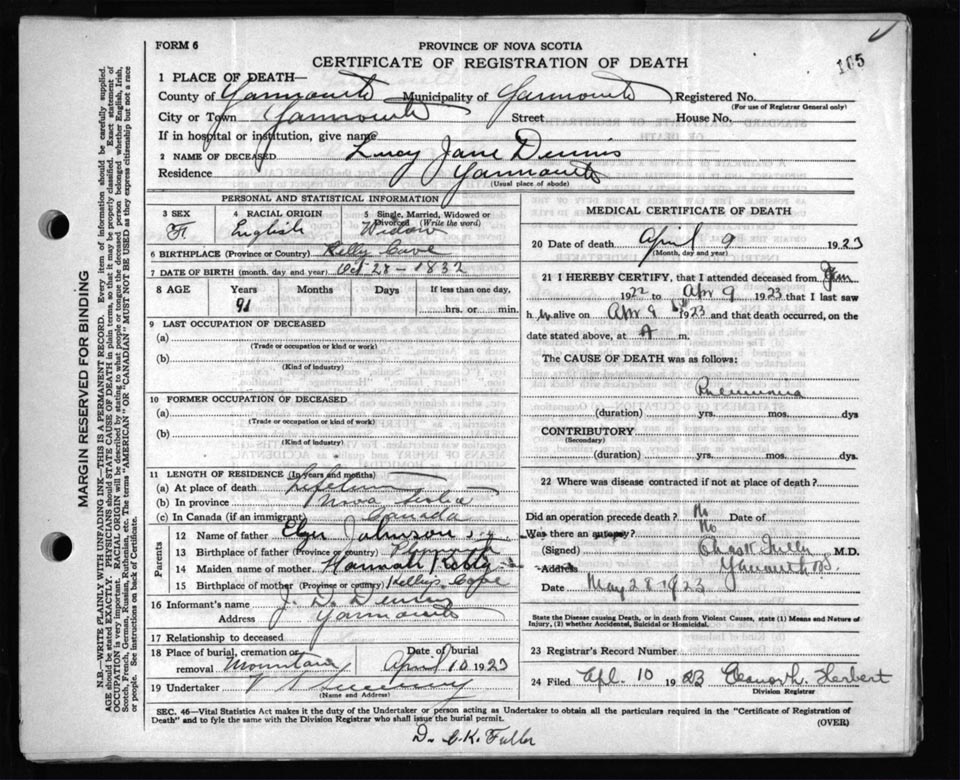 FORM 6
PROVINCE OF NOVA SCOTIA
CERTIFICATE OF REGISTRATION OF DEATH
165
MARGIN RESERVED FOR BINDING
N.B.—WRITE PLAINLY WITH UNFADING INK—THIS IS A PERMANENT RECORD. Every item of information should be carefully supplied.
AGE should be stated EXACTLY. PHYSICIANS should STATE CAUSE OF DEATH in plain terms, so that it may be properly classified. Exact statement of
OCCUPATION is very important. RACIAL ORIGIN will be described by stating to what people or tongue the deceased person belonged whether English, Irish,
Scotch, French, German, Russian, Ruthenian, etc. The terms "AMERICAN" OR "CANADIAN" MUST NOT BE USED as they express citizenship but not a race
or people. See instructions on back of Certificate.
1 PLACE OF DEATH—
County of Yarmouth Municipality of Yarmouth Registered No.
(For use of Registrar General only)
City or Town Yarmouth Street House No.
If in hospital or institution, give name
2 NAME OF DECEASED Lucy Jane Dennis
Residence Yarmouth
(Usual place of abode)
PERSONAL AND STATISTICAL INFORMATION
3 SEX 4 RACIAL ORIGIN 5 Single, Married, Widowed or Divorced (Write the word)
F English Widow
6 BIRTHPLACE (Province or Country) Kelly Cove
7 DATE OF BIRTH (month, day and year) Oct-28-1832
8 AGE Years Months Days If less than one day,
91 hrs. or min.
9 LAST OCCUPATION OF DECEASED
(a)
(Trade or occupation or kind of work)
(b)
(Kind of industry)
10 FORMER OCCUPATION OF DECEASED
(a)
(Trade or occupation or kind of work)
(b)
(Kind of industry)
11 LENGTH OF RESIDENCE (In years and months)
(a) At place of death Lifetime
(b) In province Nova Scotia
(c) In Canada (if an immigrant) Canada
Parents
12 Name of father Johnson
13 Birthplace of father (Province or country) Plymouth
14 Maiden name of mother Hannah Kelly
15 Birthplace of mother (Province or country) Kellys Cove
16 Informant's name J. D. Dennis
Address Yarmouth
17 Relationship to deceased
18 Place of burial, cremation or removal Mountain Date of burial April 10 1923
19 Undertaker V S Sweeny
(Name and Address)
MEDICAL CERTIFICATE OF DEATH
20 Date of death April 9 1923
(Month, day and year)
21 I HEREBY CERTIFY, that I attended deceased from
1922 to Apr 9 1923 that I last saw
h alive on Apr 9 1923 and that death occurred, on the
date stated above, at A m.
The CAUSE OF DEATH was as follows:
Pneumonia
(duration) yrs. mos. dys
CONTRIBUTORY
(Secondary)
(duration) yrs. mos. dys.
22 Where was disease contracted if not at place of death?
Did an operation precede death? No Date of
Was there an autopsy? No
(Signed) M.D.
Address Yarmouth NS.
Date May 28 1923
State the Disease causing Death, or in death from Violent Causes, state (1) Means and Nature of
Injury, (2) whether Accidental, Suicidal or Homicidal.
23 Registrar's Record Number
24 Filed Apl. 10 1923 Eleanor L. Herbert
Division Registrar
SEC. 46—Vital Statistics Act makes it the duty of the Undertaker or person acting as Undertaker to obtain all the particulars required in the "Certificate of Registration of
Death" and to fyle the same with the Division Registrar who shall issue the burial permit. (OVER)
D. C.K. Fuller